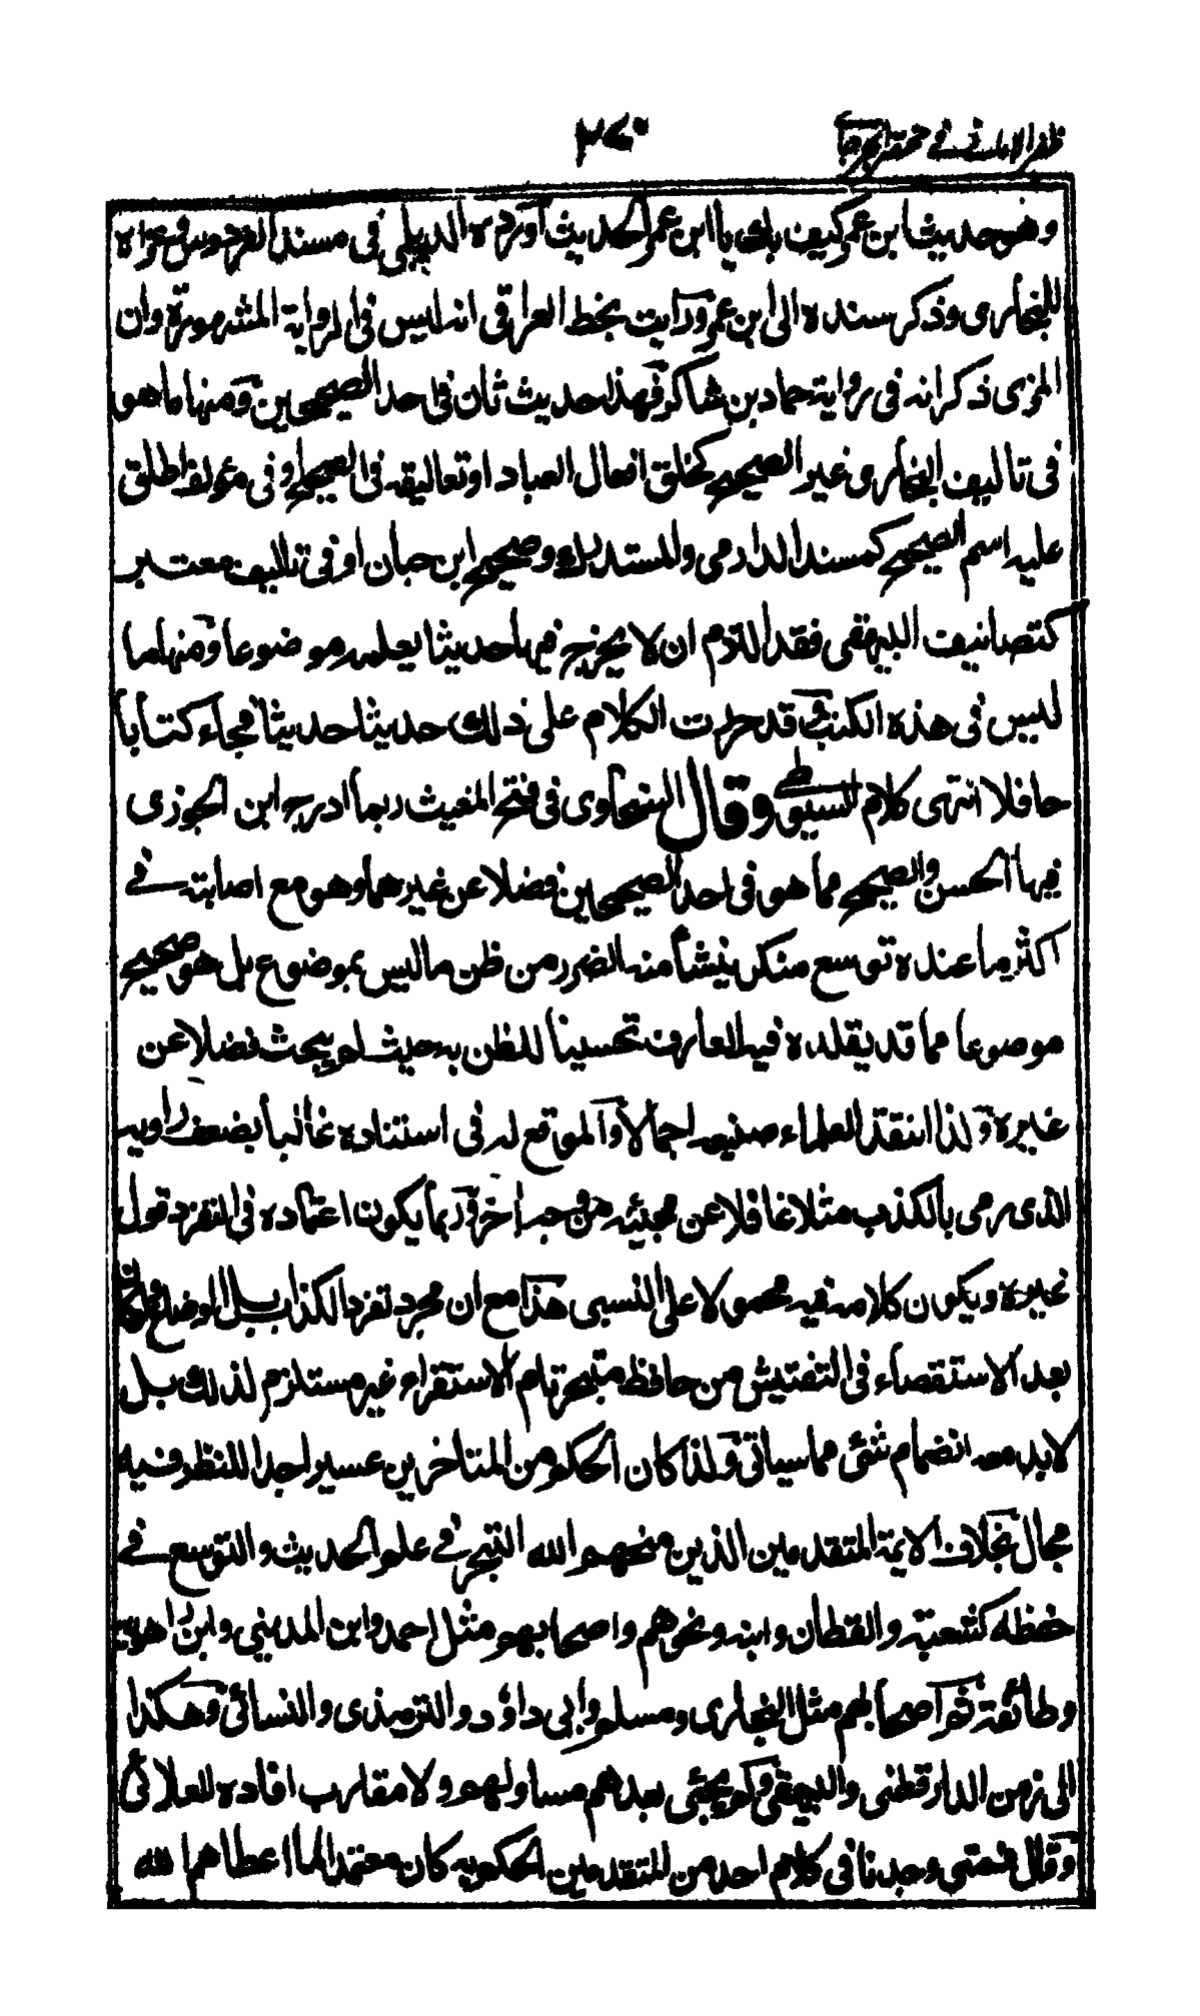 ظفر الامانى فى مختصر الجرجانى ٢٧٠
وهو حديث ابن عمر كيف بك يا ابن عمر الحديث اورده الديلمى فى مسند الفردوس وعزاه
للبخارى وذكر سنده الى ابن عمر ورايت بخط العراقى انه ليس فى الرواية المشهورة وان
المزى ذكر انه فى رواية حماد بن شاكر فهذا حديث ثان فى احد الصحيحين ومنها ما هو
فى تاليف البخارى غير الصحيح كخلق افعال العباد او تعاليقه فى الصحيح او فى مؤلف اطلق
عليه اسم الصحيح كمسند الدارمى والمستدرك وصحيح ابن حبان او فى تاليف معتبر
كتصانيف البيهقى فقد التزم ان لا يخرج فيها حديثا يعلمه موضوعا ومنها ما
ليس فى هذه الكتب وقد حررت الكلام على ذلك حديثا حديثا فجاء كتابا
حافلا انتهى كلام السيوطى وقال السخاوى فى فتح المغيث ربما ادرج ابن الجوزى
فيها الحسن والصحيح مما هو فى احد الصحيحين فضلا عن غيرهما وهو مع اصابته فے
اكثر ما عنده توسع منكر ينشأ منه الضرر من ظن ما ليس بموضوع بل هو صحيح
موضوعا مما قد يقلده فيه العارف تحسينا للظن به حيث لم يبحث فضلا عن
غيره ولذا انتقد العلماء صنيعه اجمالا والموقع له فى استناده غالبا بضعف راويه
الذى رمى بالكذب مثلا غافلا عن مجيئه من وجه اخر وربما يكون اعتماده فى التفرد قول
غيره ويكون كلامه فيه محمولا على النسبى هذا مع ان مجرد تفرد الكذاب بل الوضاع ولو كان
بعد الاستقصاء فى التفتيش من حافظ متبحر تام الاستقراء غير مستلزم لذلك بل
لا بد معه انضمام شئى مما سياتى ولذا كان الحكم من المتاخرين عسيرا جدا للنظر فيه
مجال بخلاف الائمة المتقدمين الذين منحهم الله التبحر فے علم الحديث والتوسع فے
حفظه كشعبة والقطان وابنه ونحوهم واصحابهم مثل احمد وابن المدينى وابن راهويه
وطائفة ثم اصحابهم مثل البخارى ومسلم وابى داؤد والترمذى والنسائى وهكذا
الى زمن الدارقطنى والبيهقى ولم يجئى بعدهم مساو لهم ولا مقارب افاده العلائى
وقال فمتى وجدنا فى كلام احد من المتقدمين الحكم به كان معتمدا لما اعطاهم الله